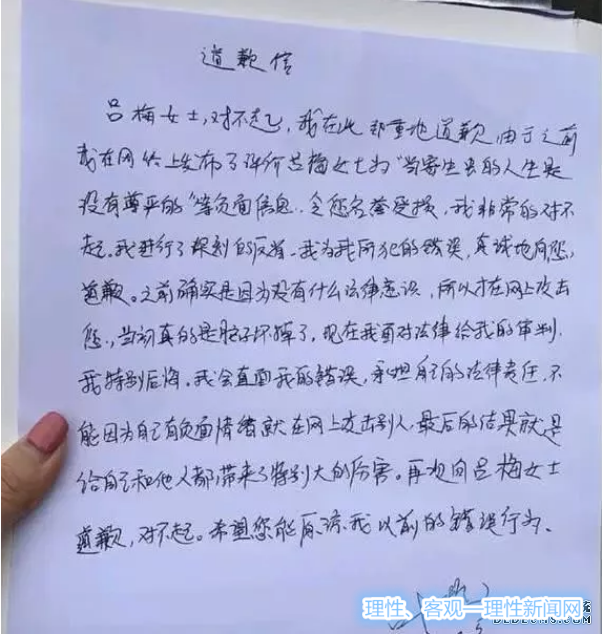 道歉信
吕梅女士,对不起,我在此郑重地道歉,由于之前
我在网络上发布了评价吕梅女士为“当寄生虫的人生是
没有尊严的”等负面信息,令您名誉受损,我非常的对不
起。我进行了深刻的反省、我为我所犯的错误,真诚地向您,
道歉。之前确实是因为没有什么法律意识,所以才在网上攻击
您,当初真的是脑子坏掉了,现在我面对法律给我的审判,
我特别后悔。我会直面我的错误,承担自己的法律责任.不
能因为自己有负面情绪就在网上攻击别人,最后的结果就是
给自己和他人都带来了特别大的伤害。再次向吕梅女士
道歉,对不起。希望您能原谅我以前的错误行为.
理性、客观—理性新闻网
DEDECMS.COM